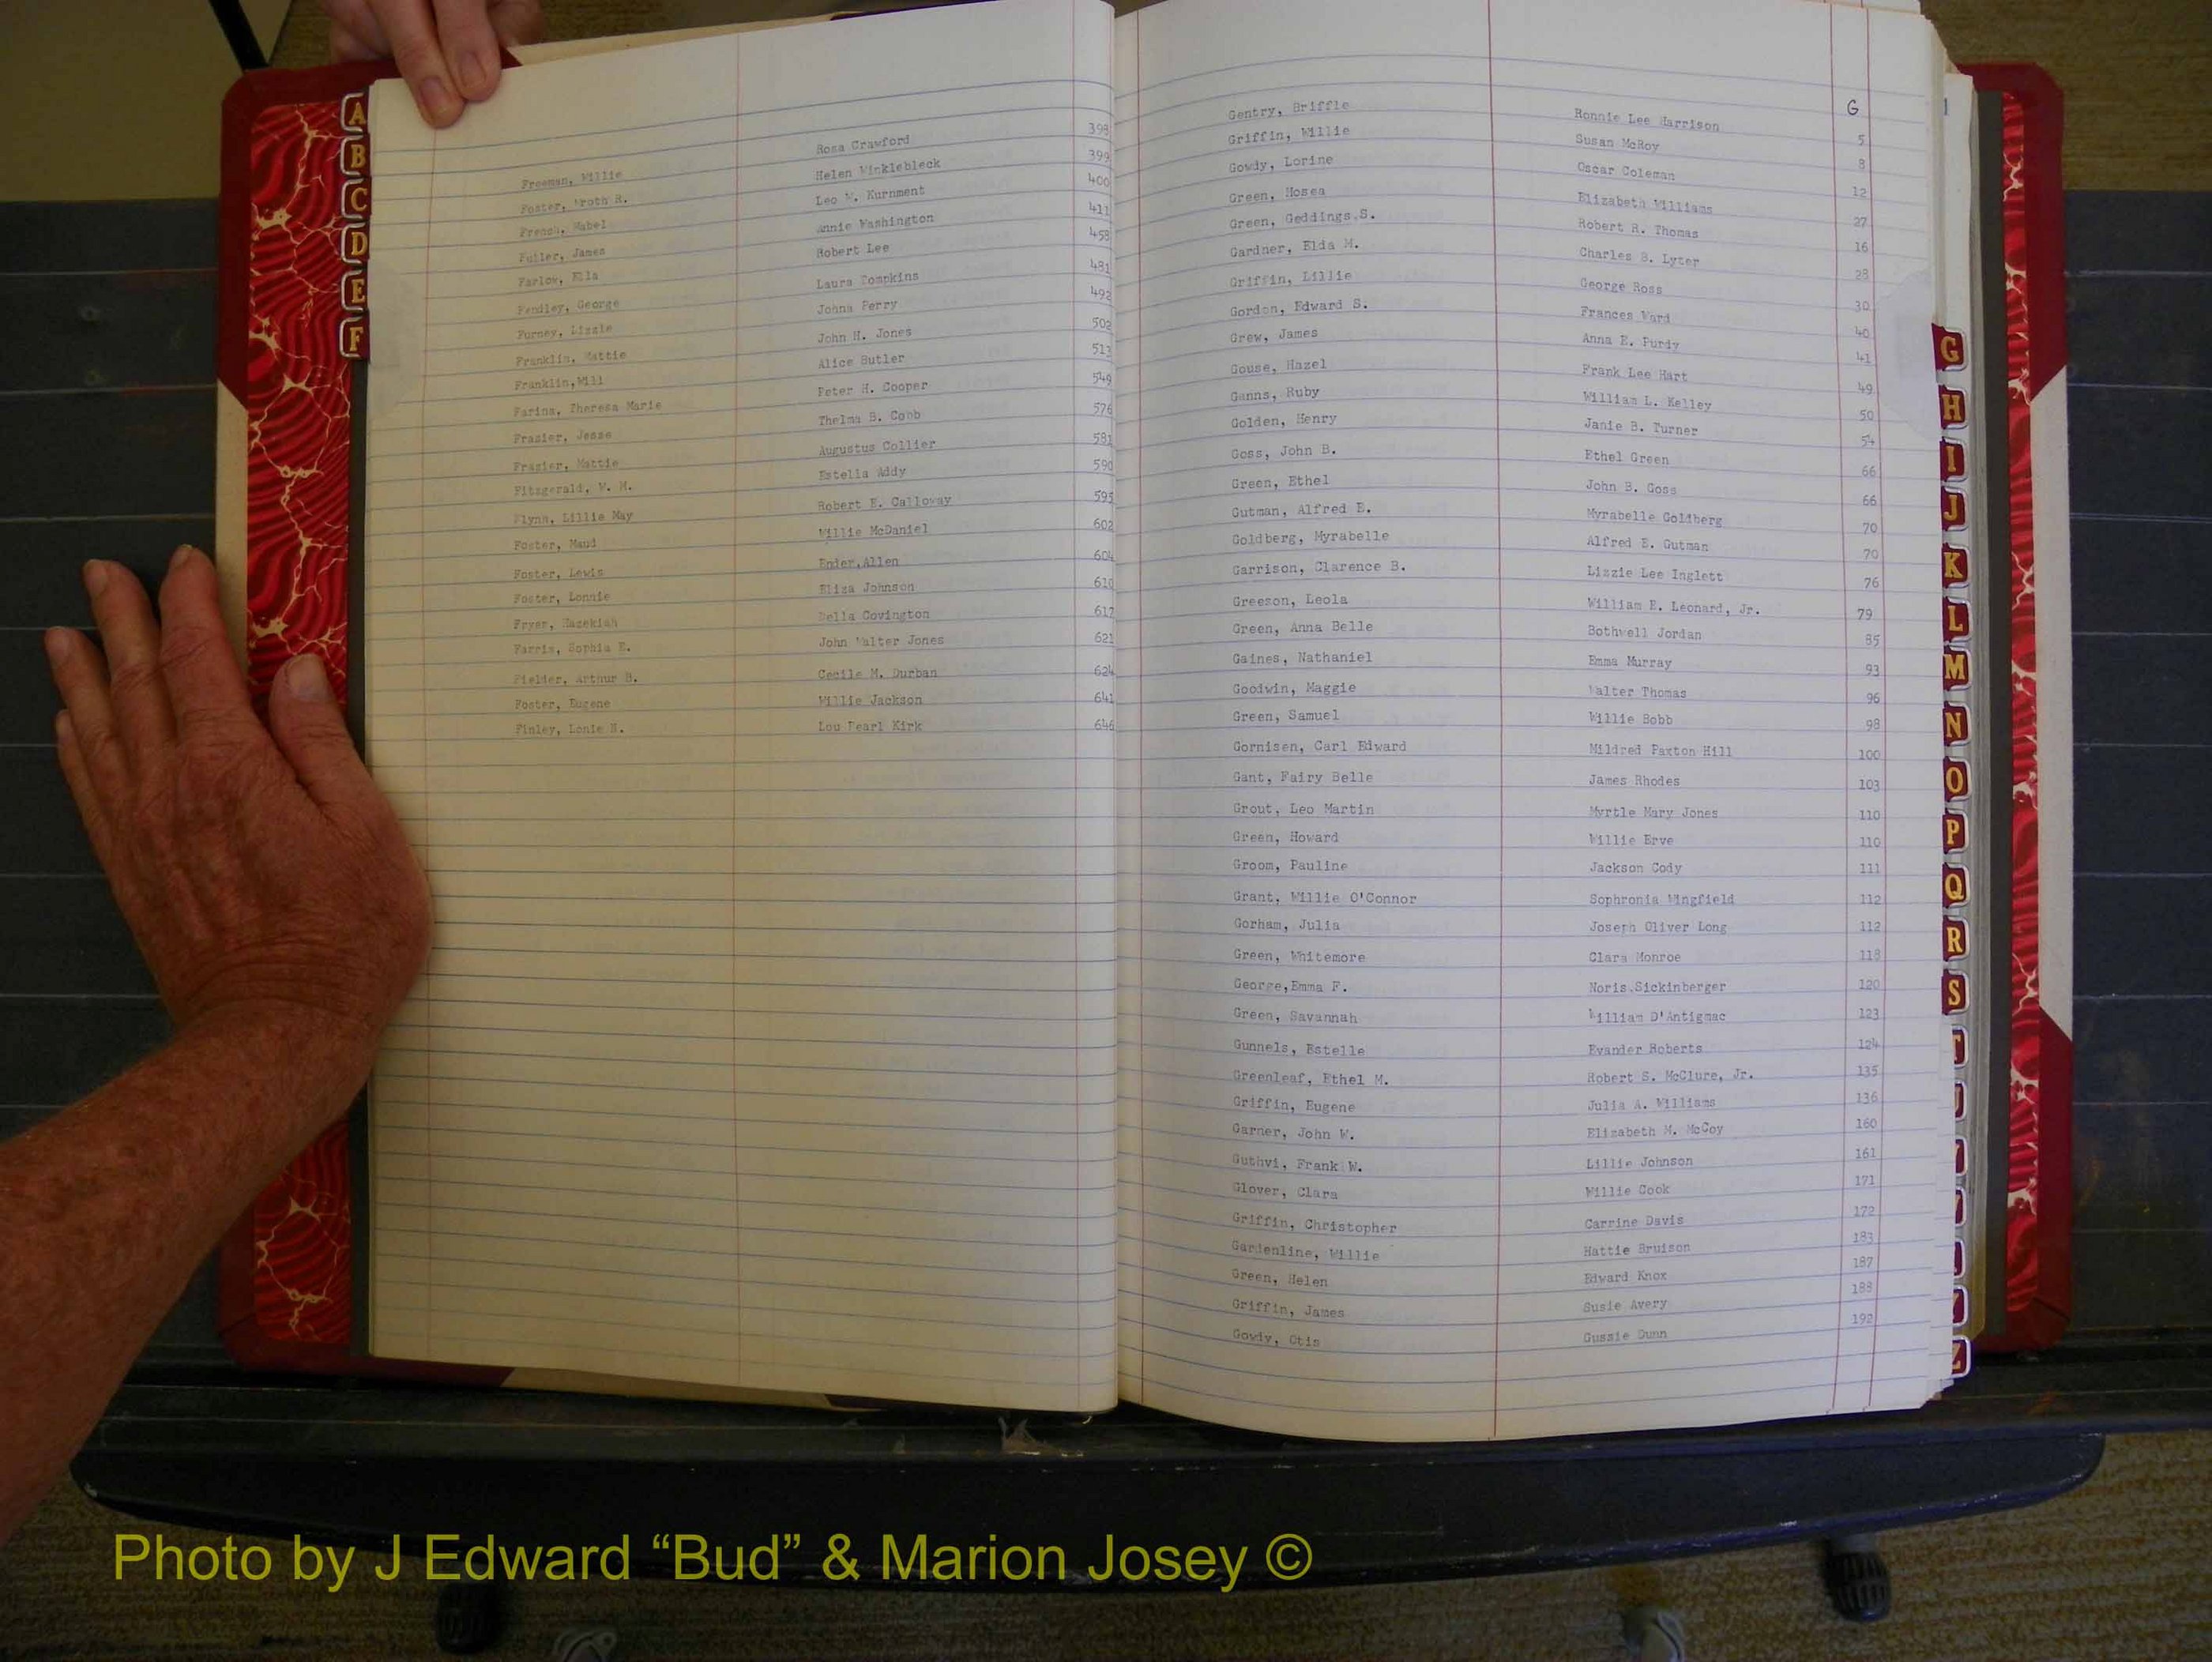 A
B
C
D
E
F
Freeman, Willie Rosa Crawford 398
Foster, Wroth R. Helen Winklebleck 399
French, Mabel Leo W. Kurnment 400
Fuller, James Annie Washington 411
Farlow, Ella Robert Lee 458
Fendley, George Laura Tompkins 481
Furney, Lizzie Johna Perry 492
Franklin, Mattie John H. Jones 502
Franklin,Will Alice Butler 513
Farina, Theresa Marie Peter H. Cooper 549
Frazier, Jesse Thelma B. Cobb 576
Frazier, Mattie Augustus Collier 581
Fitzgerald, W. M. Estella Addy 590
Flynn, Lillie May Robert E. Calloway 595
Foster, Maud Willie McDaniel 602
Foster, Lewis Ender,Allen 604
Foster, Lonnie Eliza Johnson 610
Fryer, Hazekiah Della Covington 617
Farris, Sophia E. John Walter Jones 621
Fielder, Arthur B. Cecile M. Durban 624
Foster, Eugene Willie Jackson 641
Finley, Lonie H. Lou Pearl Kirk 646
G
Gentry, Briffle Ronnie Lee Harrison 5
Griffin, Willie Susan McRoy 8
Gowdy, Lorine Oscar Coleman 12
Green, Hosea Elizabeth Williams 27
Green, Geddings.S. Robert R. Thomas 16
Gardner, Elda M. Charles B. Lyter 28
Griffin, Lillie George Ross 30
Gordon, Edward S. Frances Ward 40
Grew, James Anna E. Purdy 41
Gouse, Hazel Frank Lee Hart 49
Ganns, Ruby William L. Kelley 50
Golden, Henry Janie B. Turner 54
Goss, John B. Ethel Green 66
Green, Ethel John B. Goss 66
Gutman, Alfred E. Myrabelle Goldberg 70
Goldberg, Myrabelle Alfred E. Gutman 70
Garrison, Clarence B. Lizzie Lee Inglett 76
Greeson, Leola William E. Leonard, Jr. 79
Green, Anna Belle Bothwell Jordan 85
Gaines, Nathaniel Emma Murray 93
Goodwin, Maggie Walter Thomas 96
Green, Samuel Willie Bobb 98
Gornisen, Carl Edward Mildred Paxton Hill 100
Gant, Fairy Belle James Rhodes 103
Grout, Leo Martin Myrtle Mary Jones 110
Green, Howard Willie Erve 110
Groom, Pauline Jackson Cody 111
Grant, Willie O'Connor Sophronia Wingfield 112
Gorham, Julia Joseph Oliver Long 112
Green, Whitemore Clara Monroe 118
George,Emma F. Noris.Sickinberger 120
Green, Savannah William D'Antignac 123
Gunnels, Estelle Evander Roberts 124
Greenleaf, Ethel M. Robert S. McClure, Jr. 135
Griffin, Eugene Julia A. Williams 136
Garner, John W. Elizabeth M. McCoy 160
Guthvi, Frank W. Lillie Johnson 161
Glover, Clara Willie Cook 171
Griffin, Christopher Carrine Davis 172
Gardenline, Willie Hattie Bruison 183
Green, Helen Edward Knox 187
Griffin, James Susie Avery 188
Gowdy, Otis Gussie Dunn 192
G
H
I
J
K
L
M
N
O
P
Q
R
S
Z
Photo by J Edward “Bud” & Marion Josey ©